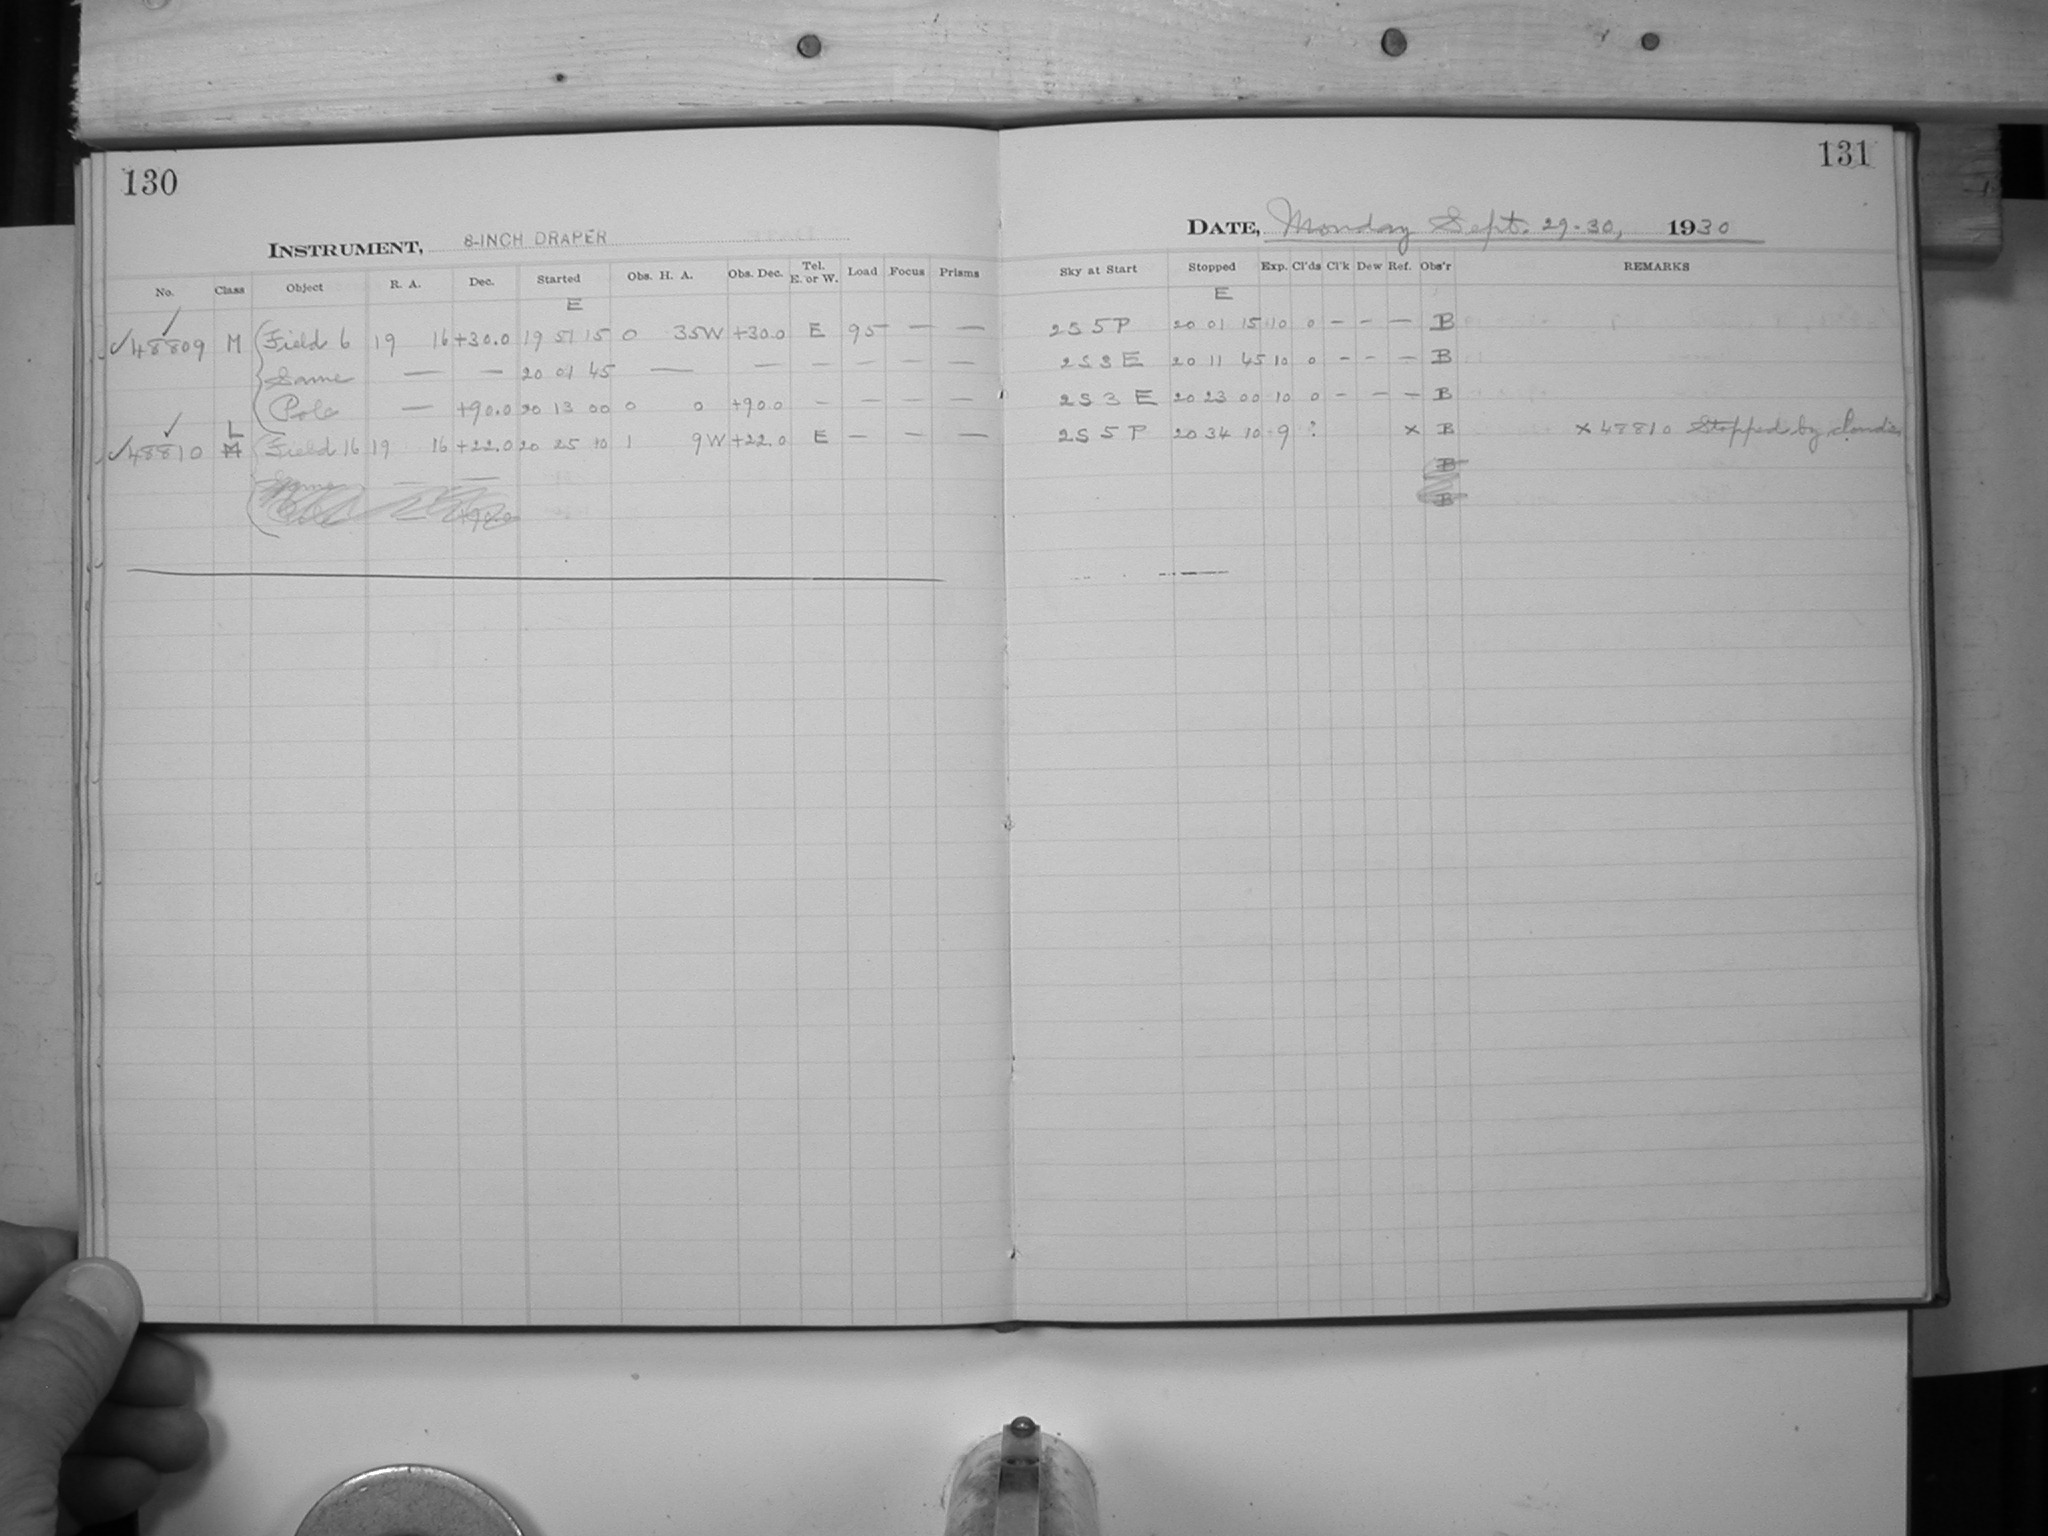 130
INSTRUMENT, 8-INCH DRAPER
No. Class Object R. A. Dec. Started Obs. H. A. Obs. Dec. Tel. E. or W. Load Focus Prisms
E
✓48809 M Field 6 19 16 +30.0 19 51 15 0 35W +30.0 E 95 — —
Same — — 20 01 45 — — — — — —
Pole — +90.0 20 13 00 0 0 +90.0 — — — —
L
✓48810 M Field 16 19 16 +22.0 20 25 10 1 9W +22.0 E — — —
Same — —
+90.0
131
DATE, Monday Sept. 29-30, 1930
Sky at Start Stopped Exp. Cl'ds Cl'k Dew Ref. Obs'r REMARKS
E
2S 5 P 20 01 15 10 0 — — — B
2S 3 E 20 11 45 10 0 — — — B
2S 3 E 20 23 00 10 0 — — — B
2S 5 P 20 34 10 9 ? x B x 48810 Stopped by clouds
B
B